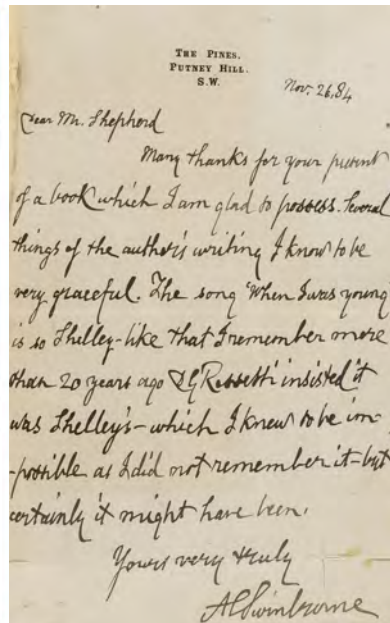 THE PINES,
PUTNEY HILL.
S.W.
Nov. 26, 84
Dear Mr. Shepherd
Many thanks for your present
of a book which I am glad to possess. Several
things of the author's writing I know to be
very graceful. The song 'When I was young'
is so Shelley-like that I remember more
than 20 years ago D G Rossetti insisted it
was Shelley's – which I knew to be im-
-possible as I did not remember it – but
certainly it might have been.
Yours very truly
A C Swinburne